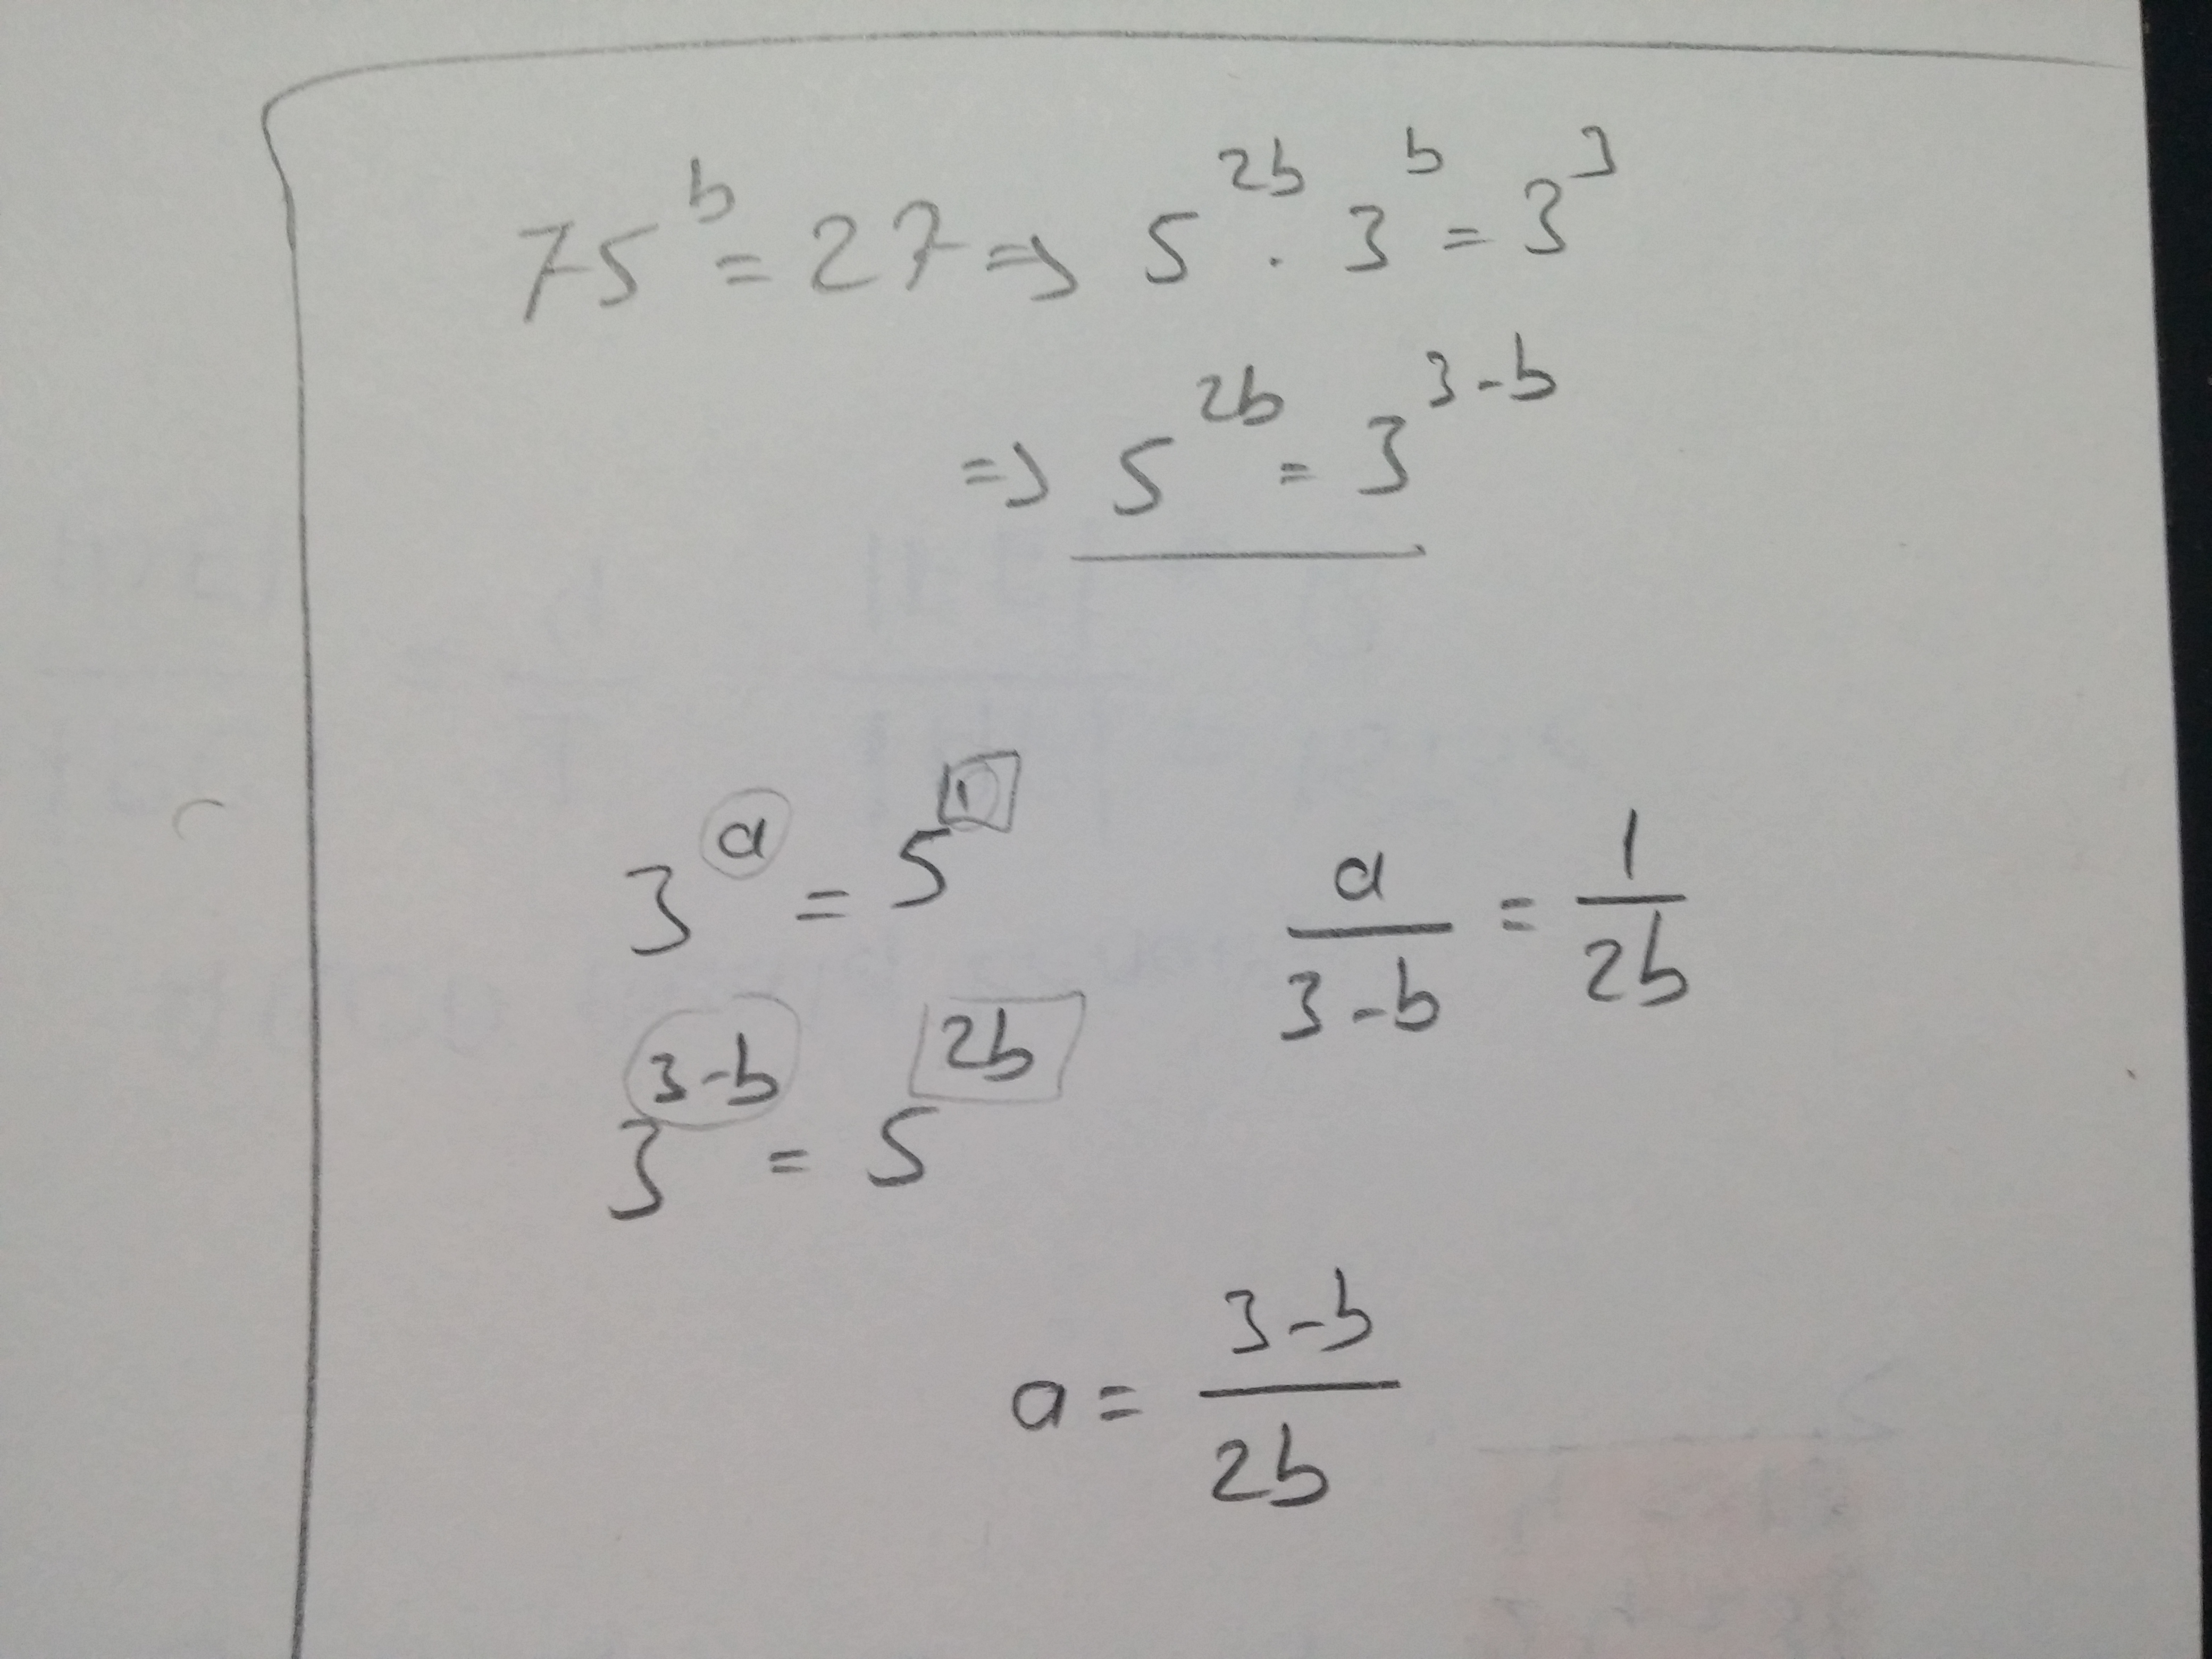 75^b = 27 => 5^2b . 3^b = 3^3
=> 5^2b = 3^3-b
3^a = 5^1
a/3-b = 1/2b
3^3-b = 5^2b
a = 3-b/2b